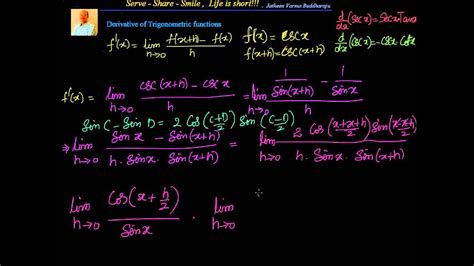 Serve - Share - Smile , Life is short!!! . Jatheen Varma Buddharaju
Derivative of Trigonometric functions
f'(x) = lim h→0 f(x+h) - f(x) / h
f(x) = cscx
f(x+h) = csc(x+h)
d/dx (secx) = secx tanx
d/dx (cscx) = -cscx cotx
f'(x) = lim h→0 csc(x+h) - cscx / h = lim h→0 1/sin(x+h) - 1/sinx / h
Sin C - Sin D = 2 Cos(C+D/2) Sin(C-D/2)
⇒ lim h→0 Sinx - Sin(x+h) / h. Sinx. Sin(x+h) = lim h→0 2 Cos(x+x+h/2) Sin(x-x-h/2) / h. Sinx. Sin(x+h)
lim h→0 Cos(x+h/2) / Sinx . lim h→0